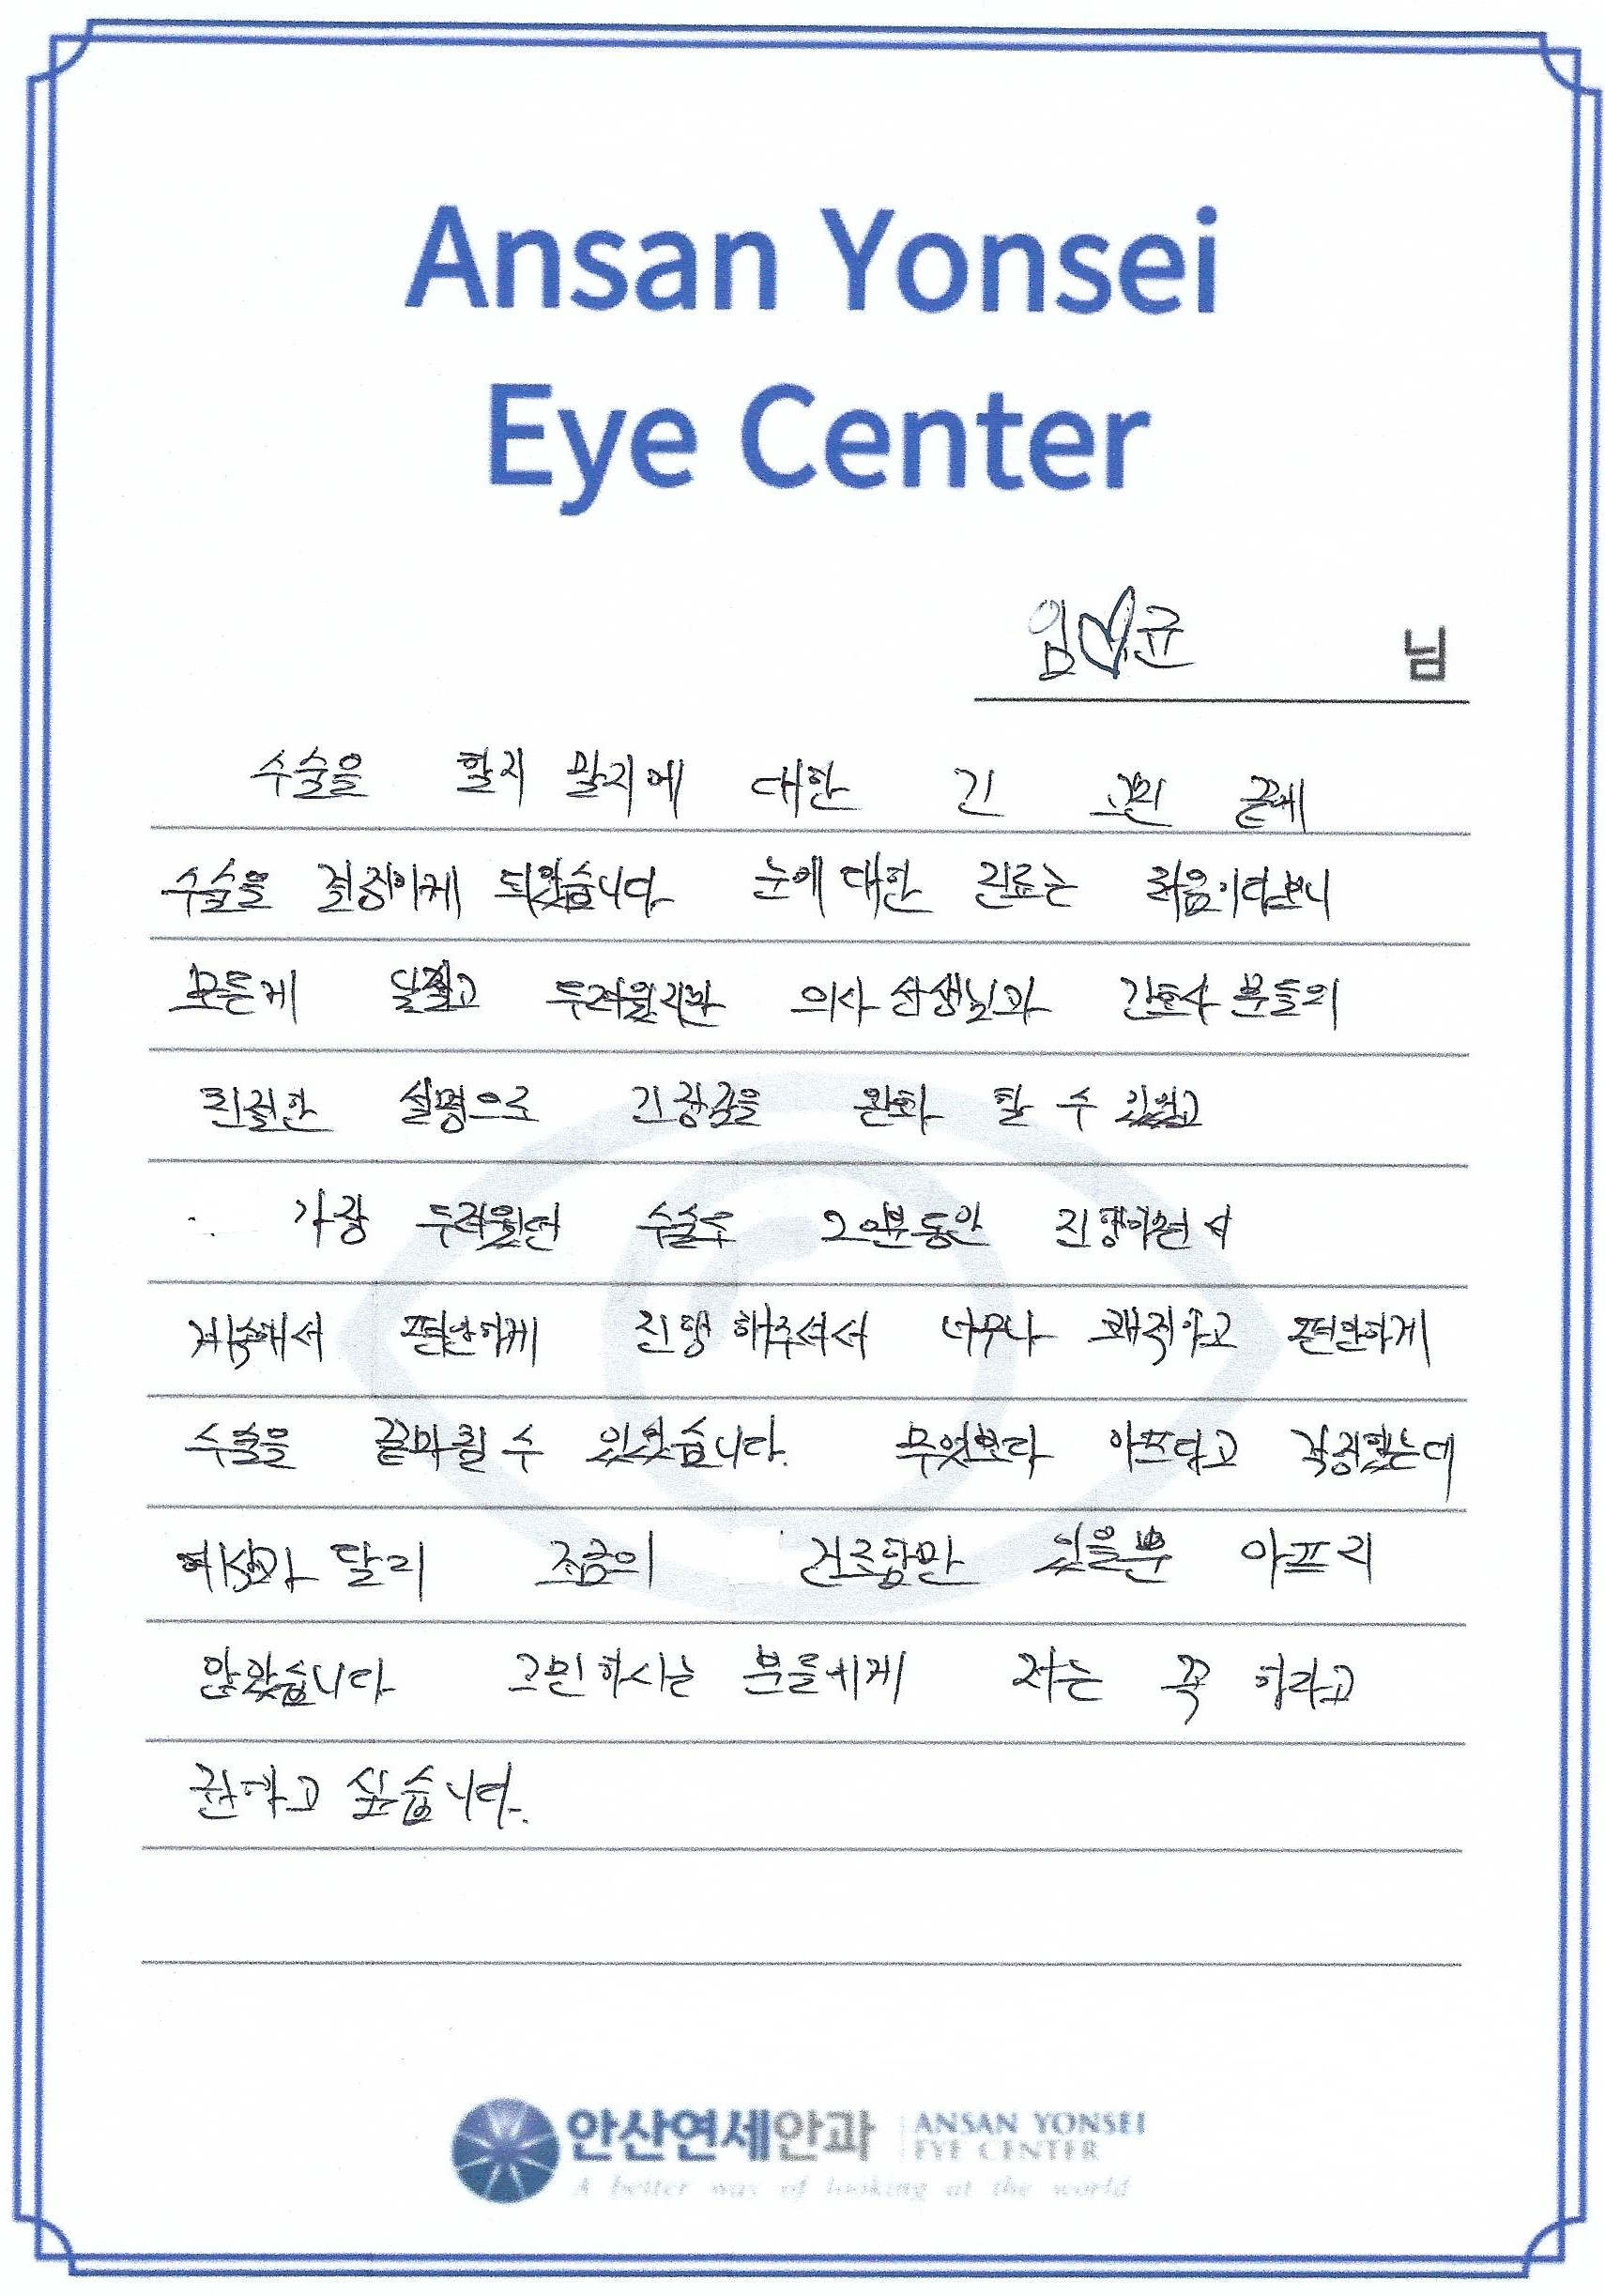 Ansan Yonsei
Eye Center
임♡균 님
수술을 할지 말지에 대한 긴 고민 끝에
수술을 결정하게 되었습니다. 눈에 대한 진료는 처음이다보니
모든게 낯설고 두려웠지만 의사 선생님과 간호사 분들의
친절한 설명으로 긴장감을 완화 할 수 있었고
가장 두려웠던 수술도 20분동안 진행하면서
계속해서 편안하게 진행해주셔서 너무나 쾌적하고 편안하게
수술을 끝마칠 수 있었습니다. 무엇보다 아프다고 걱정했는데
예상과 달리 조금의 건조함만 있을뿐 아프지
않았습니다 고민하시는 분들에게 저는 꼭 하라고
권하고 싶습니다.
안산연세안과 ANSAN YONSEI
EYE CENTER
A better way of looking at the world